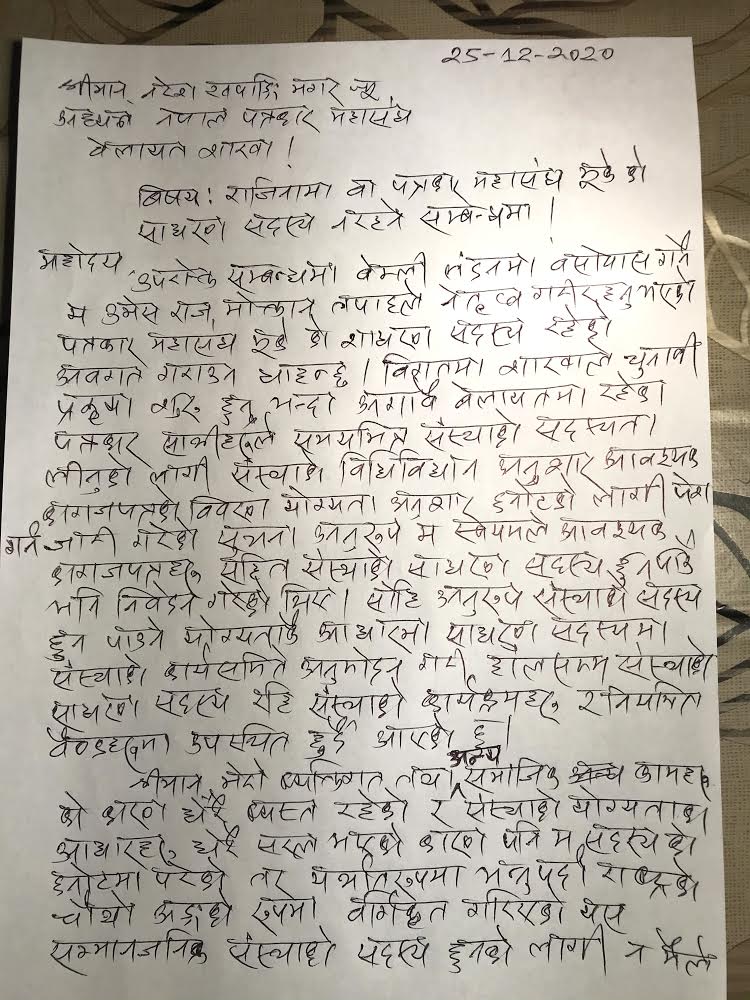 25-12-2020
श्रीमान् नरेश खपाङि मगर ज्यू
अध्यक्ष नेपाल पत्रकार महासंघ
बेलायत शाखा !
बिषय: राजिनामा वा पत्रकार महासंघ यूके को
साधारण सदस्य नरहने सम्बन्धमा !
महोदय, उपरोक्त सम्बन्धमा वेम्ली लंडनमा बसोवास गर्ने
म उमेस राज मोक्तान तपाइले नेतृत्व गरीरहनु भएको
पत्रकार महासंघ यूके को साधारण सदस्य रहेको
अवगत गराउन चाहन्छु । विगतमा शाखाले चुनावी
प्रकृया शुरु हुनु भन्दा अगावै बेलायतमा रहेका
पत्रकार साथीहरुले समयमित्र संस्थाको सदस्यता
लीनुको लागी संस्थाको विधिविधान अनुशार आवश्यक
कागजपत्रको विवरण योग्यता अनुशार छनोटको लागी पेश
गर्न जारी गरेको सूचना अनुरुप म स्वयमले आवश्यक
कागजपत्रहरु सहित संस्थाको साधारण सदस्य हुन पाऊँ
भनि निवेदन गरेको थिए । सोहि अनुरुप संस्थाको सदस्य
हुन पाउने योग्यताकै आधारमा साधारण सदस्यमा
संस्थाको कार्यसमिति अनुमोदन गरी हालसम्म संस्थाको
साधारण सदस्य रहि संस्थाको कार्यक्रमहरु र नियमित
बैठकहरुमा उपस्थित हुदै आएको छु ।
श्रीमान मेरो व्यक्तिगत तथा अन्य समाजिक कामहरु
को कारण धेरै व्यस्त रहेको र संस्थाको योग्यताको
आधारहरु धेरै सरल भएको कारण पनि म सदस्य को
छनोटमा परेको तर यर्थातरुपमा भन्नुपर्दा राष्ट्रको
चौथो अङ्गको रुपमा वर्गिकृत गरिएको यस
सम्मानजनिक संस्थाको सदस्य हुनको लागी न मैले